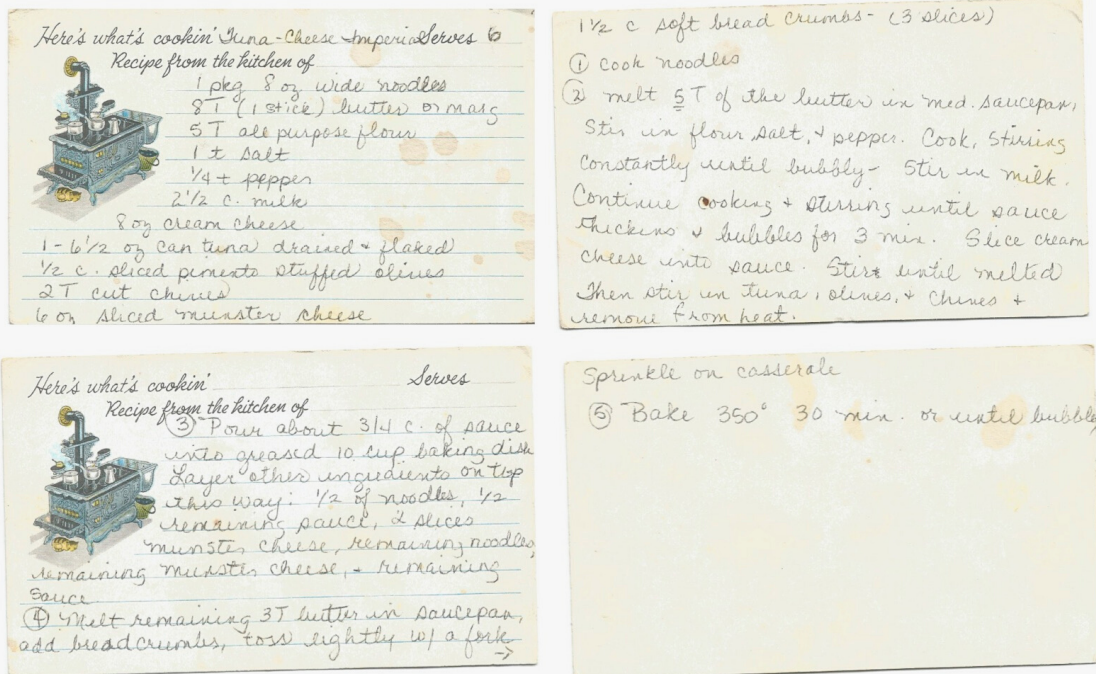 Here's what's cookin' Tuna-Cheese Imperial Serves 6
Recipe from the kitchen of
1 pkg 8 oz wide noodles
8 T (1 stick) butter or marg
5 T all purpose flour
1 t salt
1/4 t pepper
2 1/2 c. milk
8 oz cream cheese
1 - 6 1/2 oz can tuna drained & flaked
1/2 c. sliced pimento stuffed olives
2 T cut chives
6 oz sliced munster cheese
1 1/2 c soft bread crumbs - (3 slices)
① Cook noodles
② melt 5 T of the butter in med. saucepan,
Stir in flour, salt, & pepper. Cook, stirring
constantly until bubbly - Stir in milk.
Continue cooking & stirring until sauce
thickins & bubbles for 3 min. Slice cream
cheese into sauce. Stir until melted
Then stir in tuna, olives, & chives &
remove from heat.
Here's what's cookin' Serves
Recipe from the kitchen of
③ Pour about 3/4 c. of sauce
into greased 10 cup baking dish
Layer other ingredients on top
this way: 1/2 of noodles, 1/2
remaining sauce, 2 slices
munster cheese, remaining noodles,
remaining munster cheese, & remaining
sauce
④ Melt remaining 3T butter in saucepan,
add breadcrumbs, toss lightly w/ a fork
→
Sprinkle on casserale
⑤ Bake 350° 30 min or until bubbly